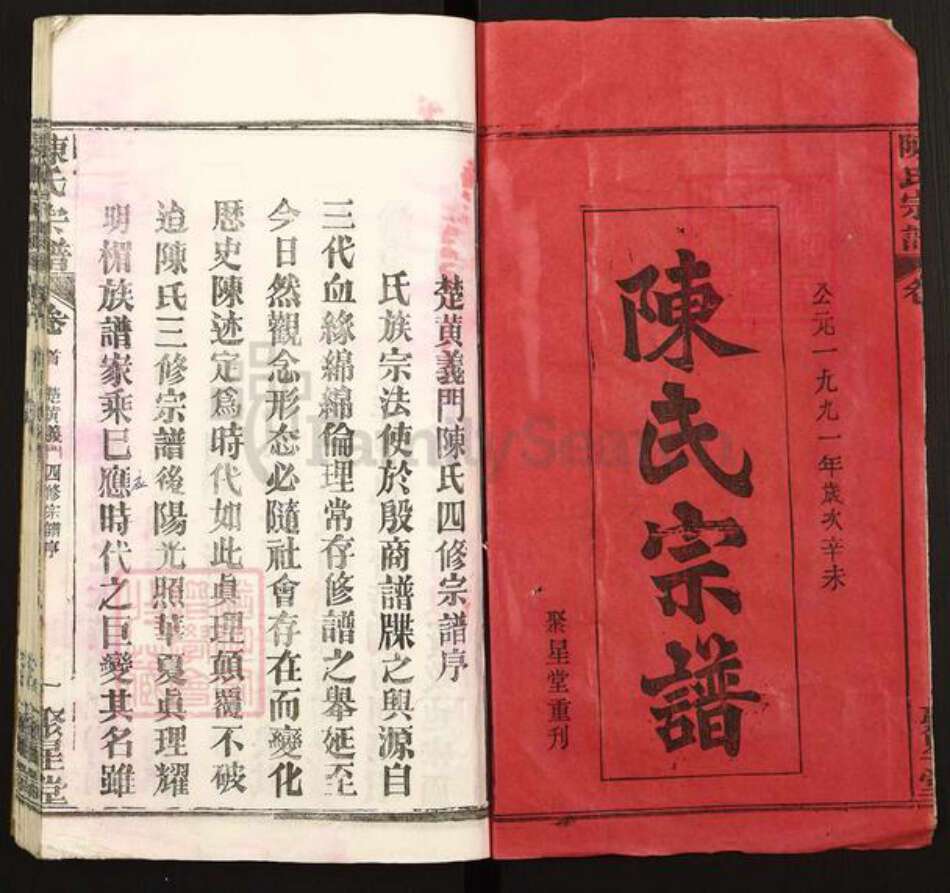 陳氏宗譜
公元一九九一年歲次辛未
陳氏宗譜
聚星堂重刊
楚黃義門陳氏四修宗譜序
氏族宗法使於殷商譜牒之興源自
三代血緣綿綿倫理常存修譜之舉延至
今日然觀念形态必隨社會存在而變化
歷史陳迹定爲時代如此真理顛覆不破
迨陳氏三修宗譜後陽光照華夏真理耀
明楣族譜家乘已應時代之巨變其名雖
陳氏宗譜 卷首 楚黃義門四修宗譜序 一 聚星堂
FamilySearch